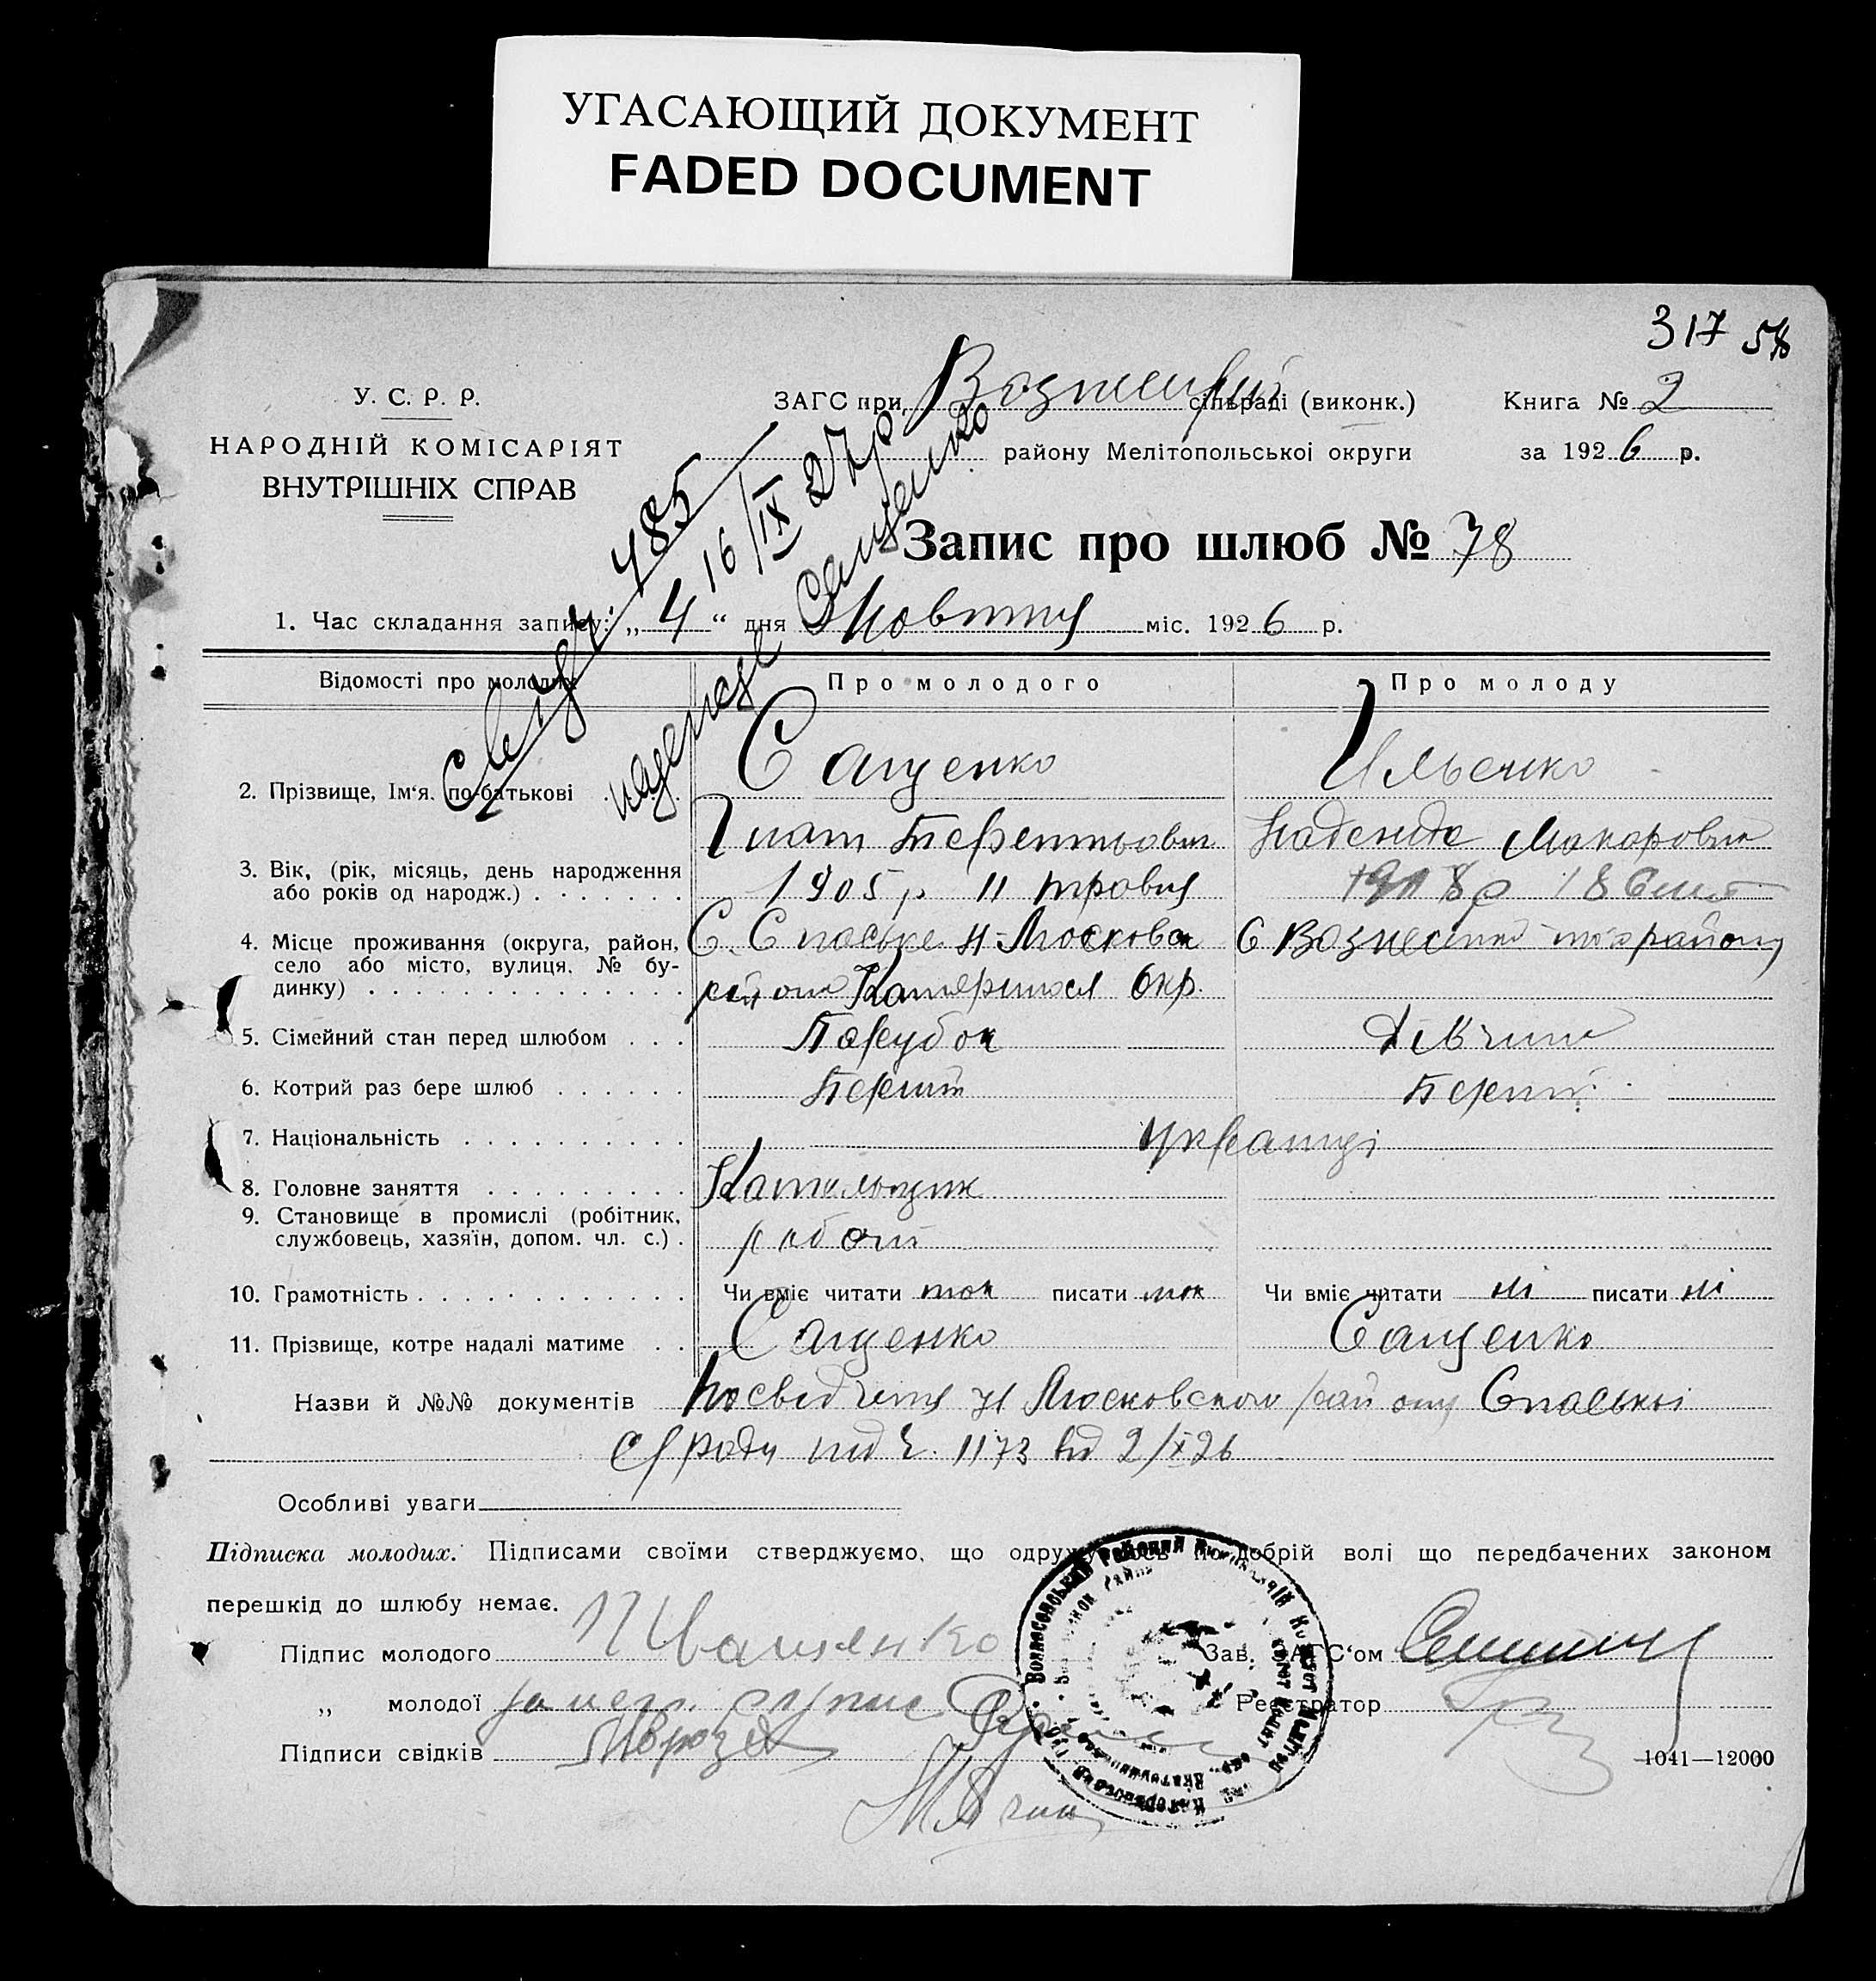 УГАСАЮЩИЙ ДОКУМЕНТ
FADED DOCUMENT
317 58
У. С. Р. Р.
НАРОДНІЙ КОМІСАРІЯТ
ВНУТРІШНІХ СПРАВ
ЗАГС при сільраді (виконк.)
району Мелітопольської округи
Книга № 2
за 1926 р.
485
16/IX 27 р
Сащенко
Запис про шлюб № 78
1. Час складання запису: „4“ дня Жовтня міс. 1926 р.
Відомості про молодих Про молодого Про молоду
2. Прізвище, Ім'я, по-батькові Сащенко Ильенко
Гнат Терентьович Надежда Макаровна
3. Вік, (рік, місяць, день народження або років од народж.) 1905 р 11 травня 1908 р 18
4. Місце проживання (округа, район, село або місто, вулиця, № будинку) С. Спаське Н-Московськ С Вознесенка району
району Катериносл Окр.
5. Сімейний стан перед шлюбом Парубок Дівчина
6. Котрий раз бере шлюб Перший Перший
7. Національність Українці
8. Головне заняття
9. Становище в промислі (робітник, службовець, хазяїн, допом. чл. с.) рабочий
10. Грамотність Чи вміє читати так писати так Чи вміє читати ні писати ні
11. Прізвище, котре надалі матиме Сащенко Сащенко
Назви й №№ документів Посвідчення Н Московского району Спаської
с/ради під ч. 1173 від 2/X 26
Особливі уваги
Підписка молодих. Підписами своїми стверджуємо, що одружуємось по добрій волі що передбачених законом
перешкід до шлюбу немає.
Підпис молодого Зав. ЗАГС'ом
„ молодої Реєстратор
Підписи свідків
1041—12000